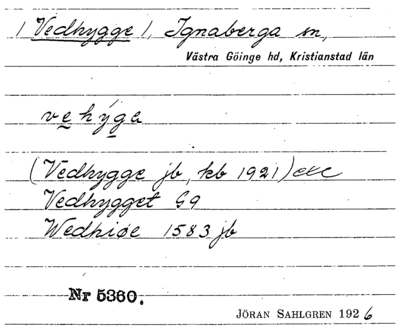 / Vedhygge /, Ignaberga sn,
Västra Göinge hd, Kristianstad län
vehýga
(Vedhygge jb, kb 1921) etc
Vedhygget G9
Wedhiøe 1583 jb
Nr 5360.
JÖRAN SAHLGREN 1926